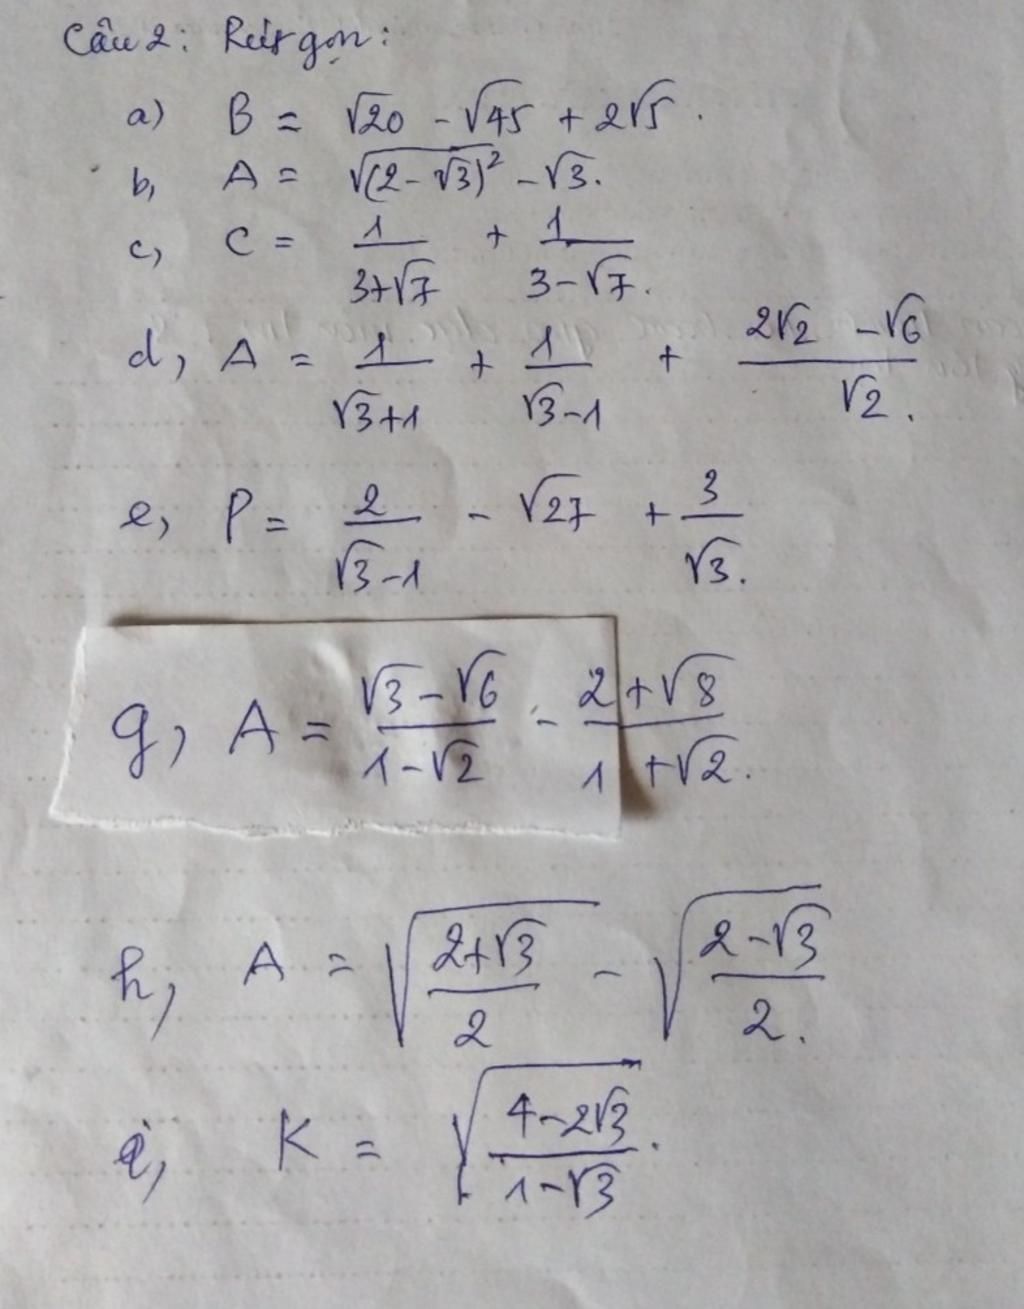 Câu 2: Rút gọn:
a) B = √20 - √45 + 2√5.
b, A = √(2-√3)² - √3.
c, C = 1/(3+√7) + 1/(3-√7).
d, A = 1/(√3+1) + 1/(√3-1) + (2√2 - √6)/√2.
e, P = 2/(√3-1) - √27 + 3/√3.
g, A = (√3-√6)/(1-√2) - (2+√8)/(1+√2).
h, A = √((2+√3)/2) - √((2-√3)/2).
i, K = √((4-2√3)/(1-√3)).